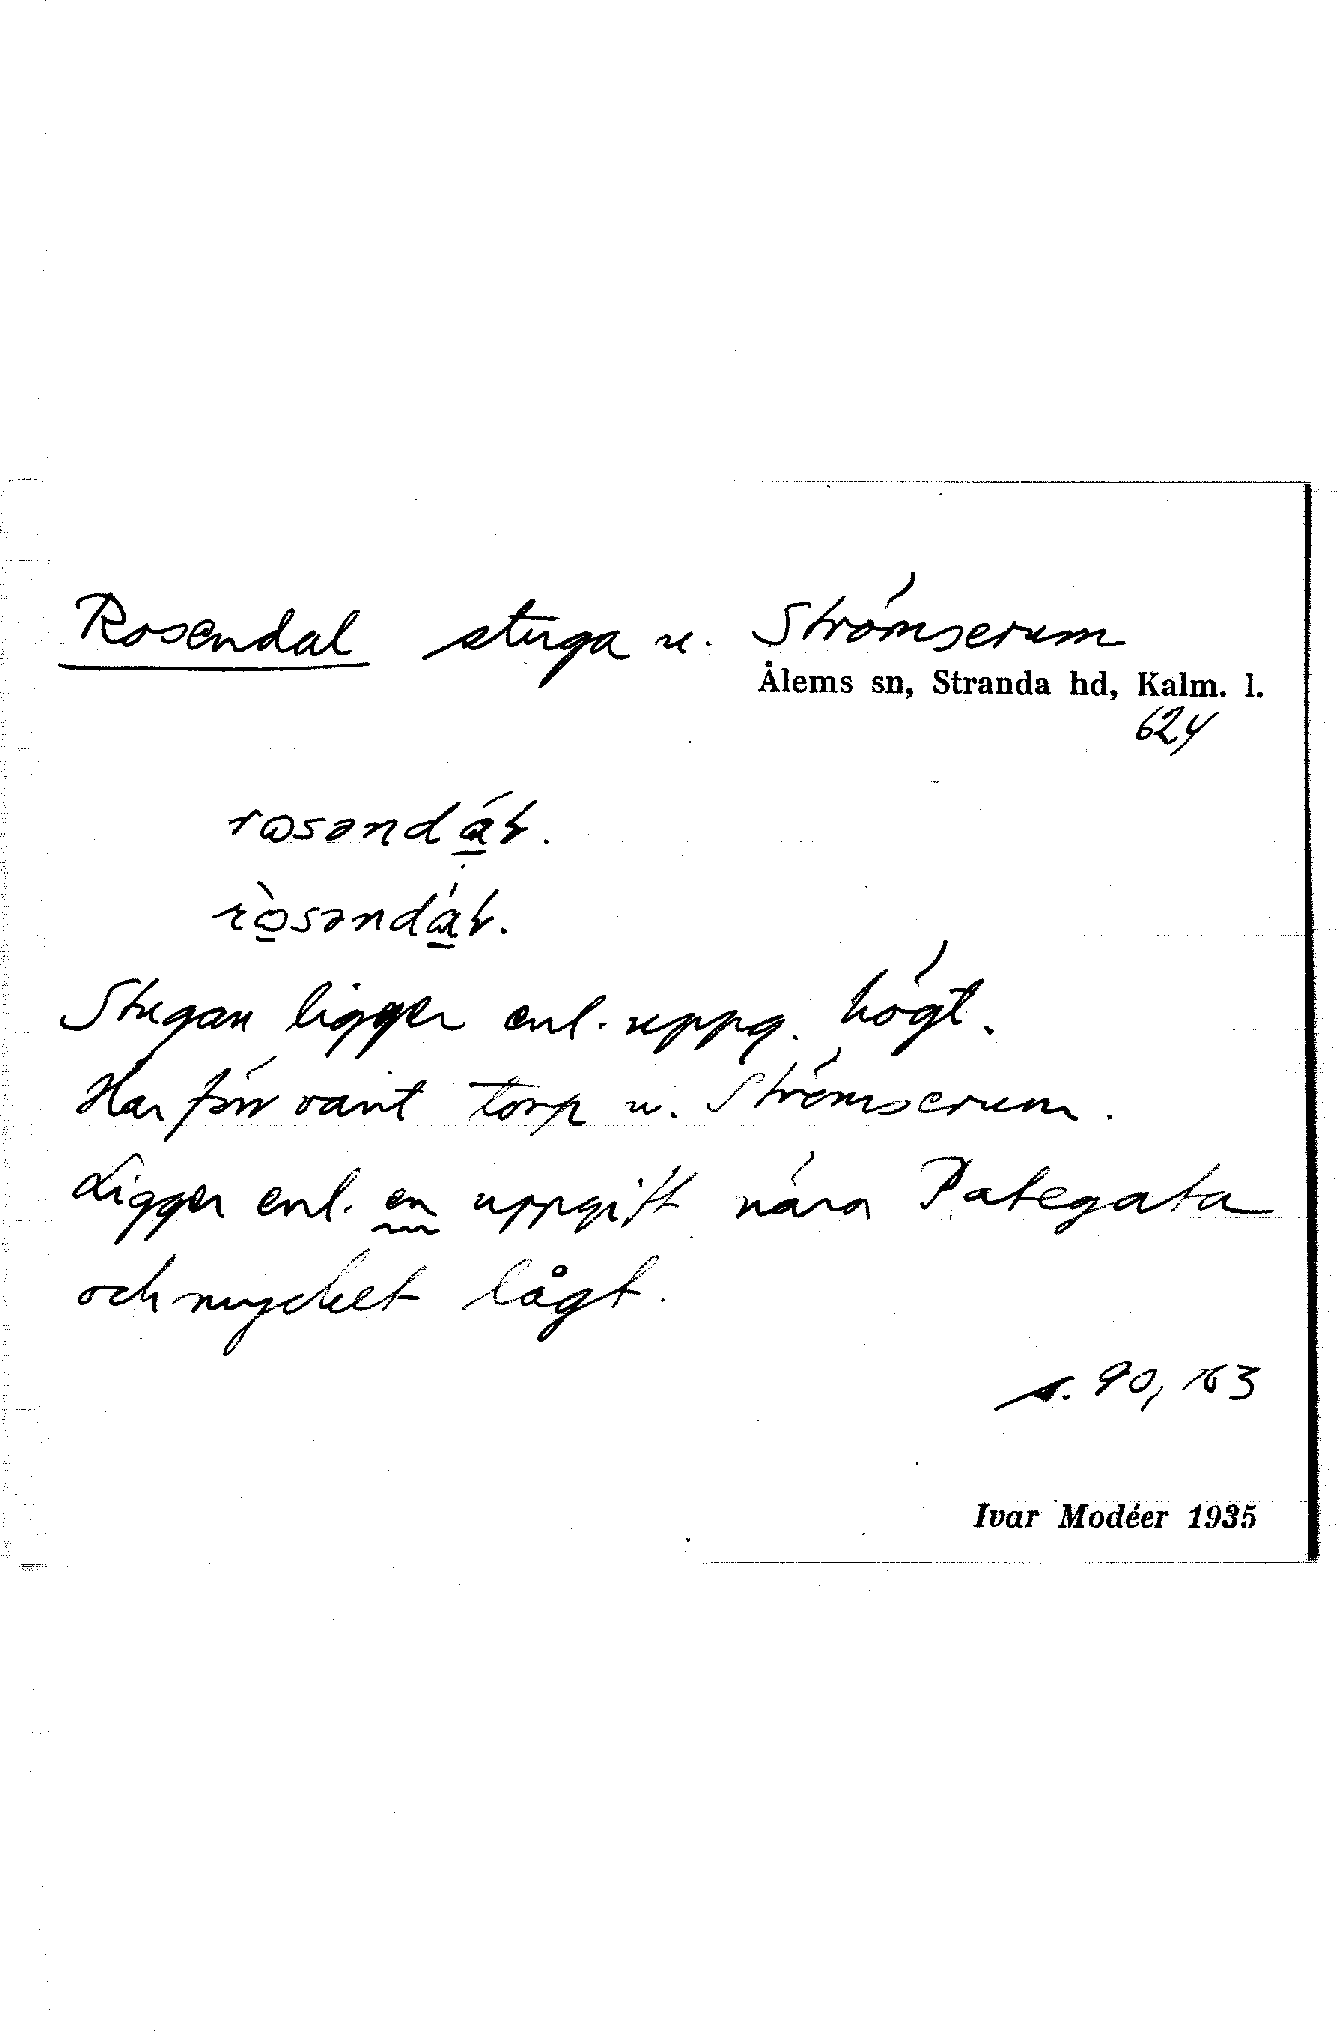 Rosendal stuga u. Strömserum
Ålems sn, Stranda hd, Kalm. l.
624
rosəndáɫ.
ròsəndáɫ.
Stugan ligger enl. uppg. högt.
Har förr varit torp u. Strömserum.
Ligger enl. en uppgift nära Pategata
och mycket lågt.
s. 90, 163
Ivar Modéer 1935